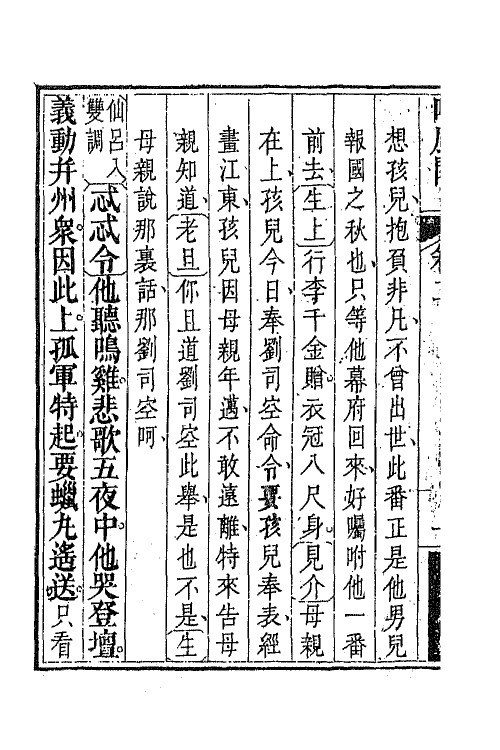 想孩兒、抱負非凡、不曾出世、此番正是他男兒
報國之秋也、只等他幕府回來、好囑咐他一番
前去、生上行李千金贈。衣冠八尺身。見介母親
在上、孩兒今日奉劉司空命、令賫孩兒奉表、經
畫江東、孩兒因母親年邁、不敢遠離、特來告母
親知道、老旦你且道劉司空此舉、是也不是、生
母親說那裏話、那劉司空呵、
仙呂入雙調忒忒令他聽鳴雞。悲歌五夜中。他哭登壇。
義動幷州衆。因此上。孤軍特起。要蠟丸遙送。只看